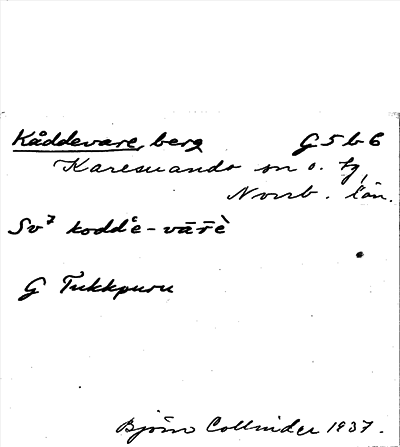 Kåddevare, berg G 5 b 6
Karesuando sn o. tg,
Norrb. län.
Sv⁷ koddẹ̄-vārè
G Tukkpuru
Björn Collinder 1937.